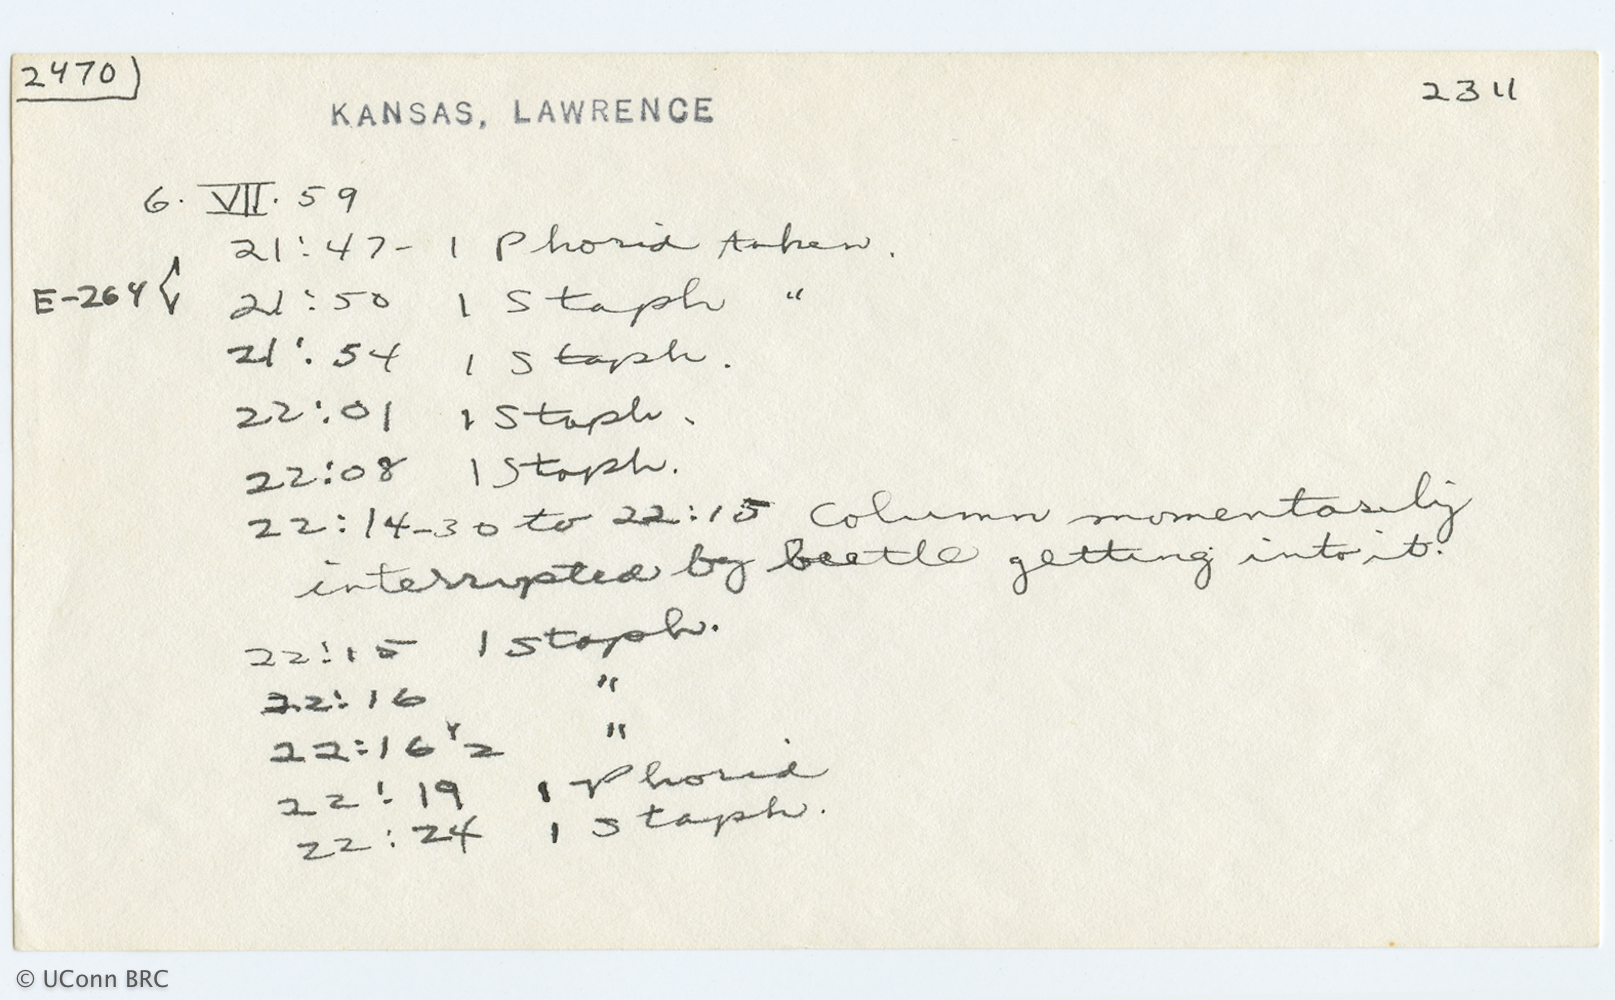 2470)
2311
KANSAS, LAWRENCE
6. VII. 59
21:47- 1 Phorid taken.
E-264
21:50 1 Staph "
21:54 1 Staph.
22:01 1 Staph.
22:08 1 Staph.
22:14-30 to 22:15 Column momentarily
interrupted by beetle getting into it.
22:15 1 Staph.
22:16 "
22:16 1/2 "
22:19 1 Phorid
22:24 1 Staph.
© UConn BRC